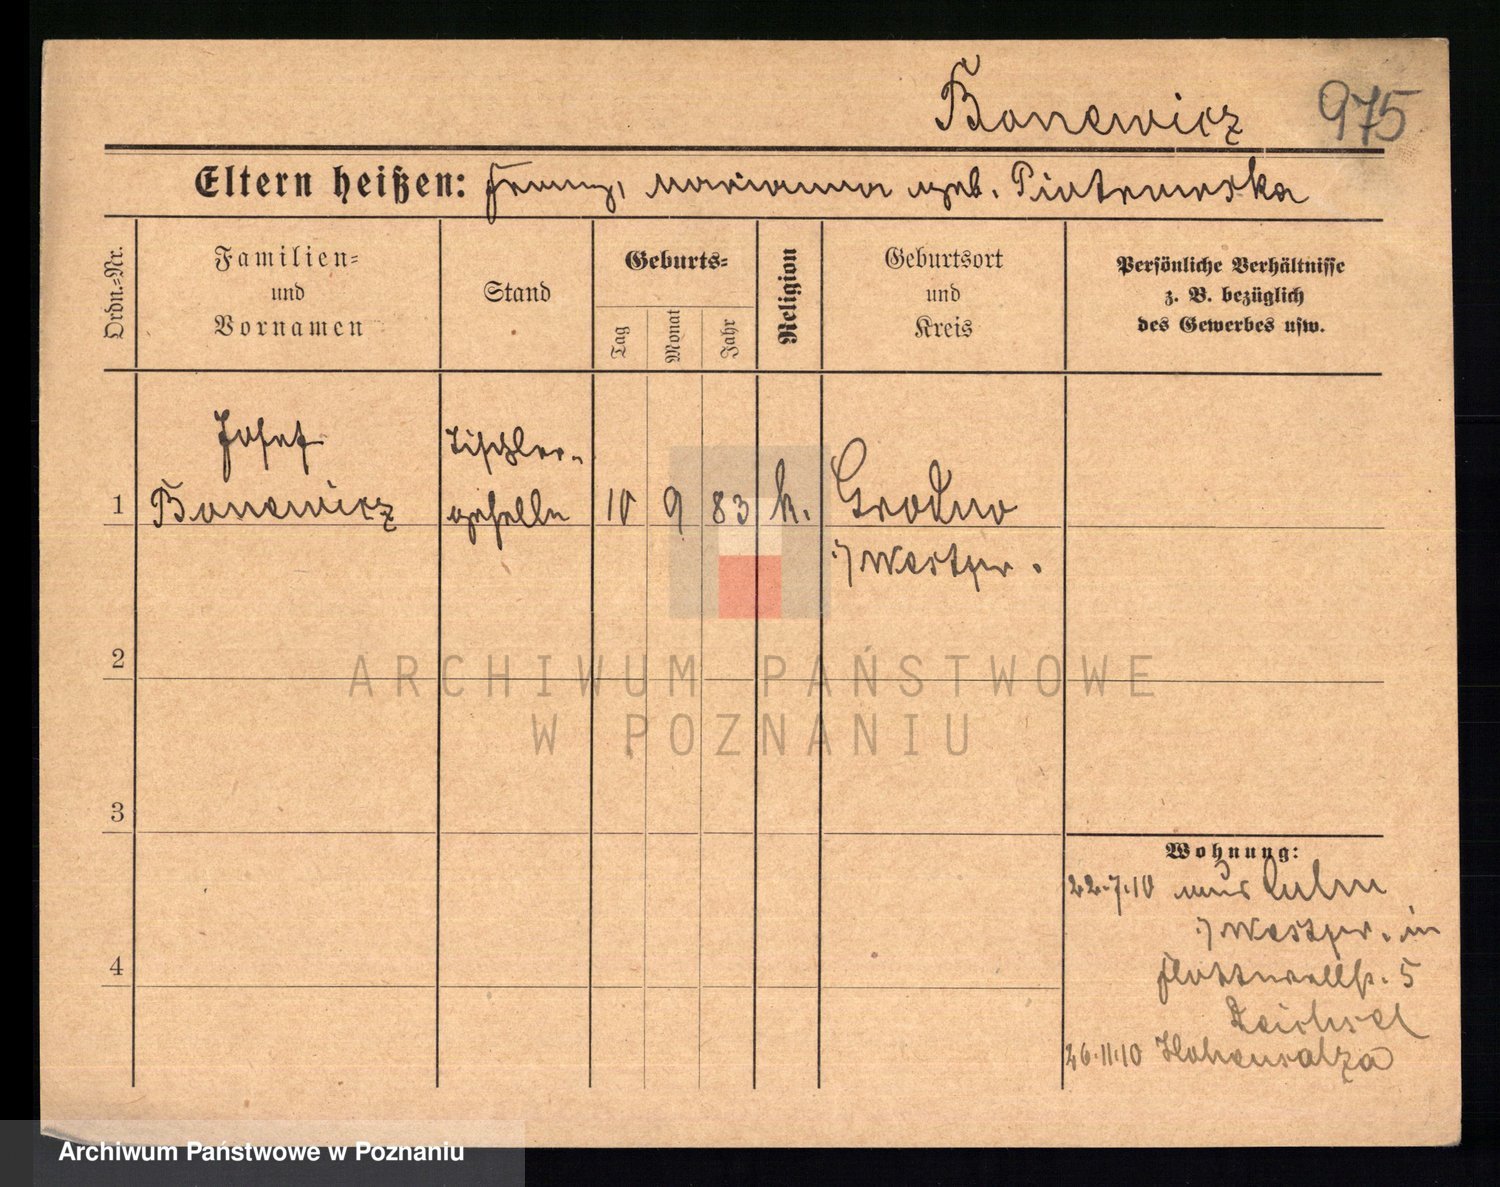 Bonewicz 975
Eltern heißen: Franz, Marianna geb. Piotrowska
Ordn.=Nr.
Familien=
und
Vornamen
Stand
Geburts=
Tag
Monat
Jahr
Religion
Geburtsort
und
Kreis
Persönliche Verhältnisse
z. B. bezüglich
des Gewerbes usw.
Josef Tischler-
1 Bonewicz geselle 10 9 83 k. Grodno
:/ Westpr.
2
ARCHIWUM PAŃSTWOWE
W POZNANIU
3
Wohnung:
22.7.10 aus Culm
:/ Westpr. in
Flottwellstr. 5
4
26.11.10 Hohensalza
Archiwum Państwowe w Poznaniu